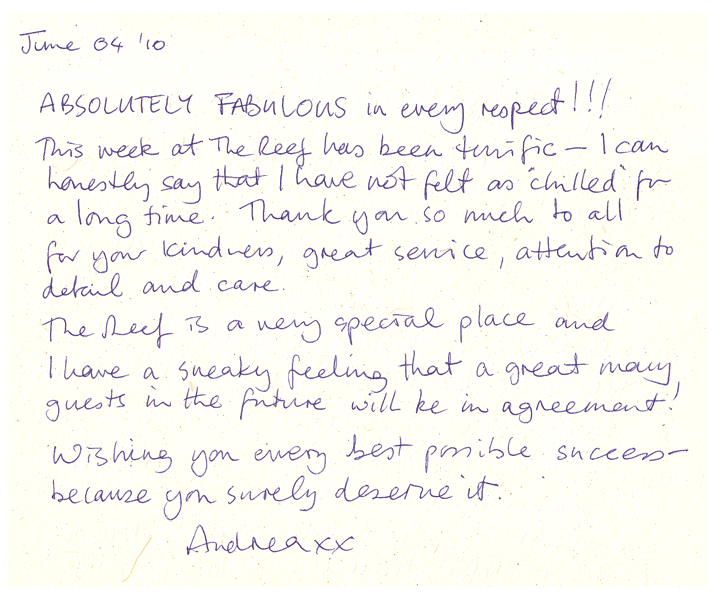 June 04 '10
ABSOLUTELY FABULOUS in every respect!!!
This week at The Reef has been terrific — I can
honestly say that I have not felt as 'chilled' for
a long time. Thank you so much to all
for your kindness, great service, attention to
detail and care.
The Reef is a very special place and
I have a sneaky feeling that a great many
guests in the future will be in agreement!
Wishing you every best possible success —
because you surely deserve it.
Andrea xx